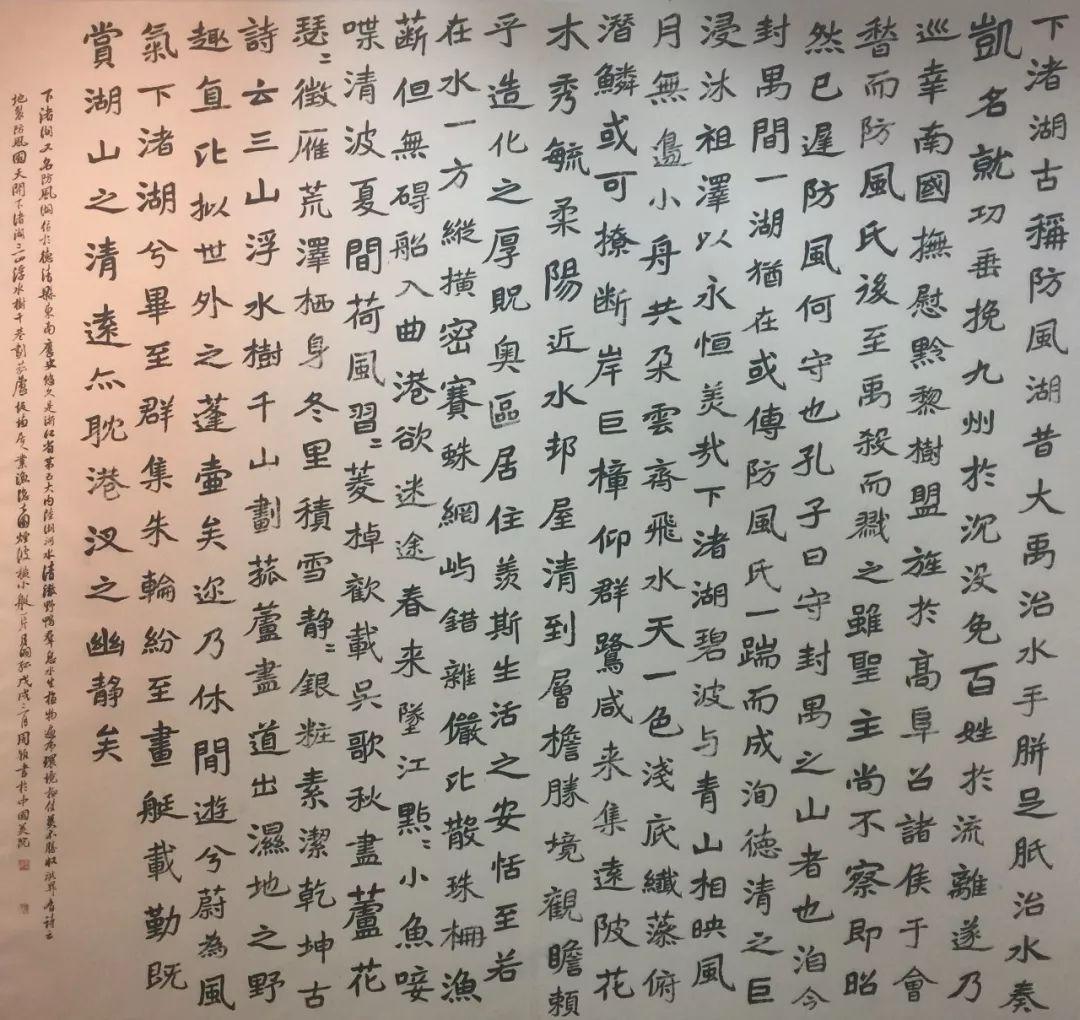 下渚湖古稱防風湖昔大禹治水手胼足胝治水奏
凱名就功垂挽九州於沉没免百姓於流離遂乃
巡幸南國撫慰黔黎樹盟旌於高阜召諸侯于會
嵇而防風氏後至禹殺而戮之雖聖主尚不察即昭
然已遲防風何守也孔子曰守封禺之山者也洎今
封禺間一湖猶在或傳防風氏一踹而成洵德清之巨
浸沐祖澤以永恒美哉下渚湖碧波与青山相映風
月無邊小舟共朵雲齊飛水天一色淺底纖藻俯
潛鱗或可撩断岸巨樟仰群鷺咸来集遠陂花
木秀毓柔陽近水邨屋清到層檐勝境觀瞻頼
乎造化之厚貺奥區居住羨斯生活之安恬至若
在水一方縱橫密賽蛛網屿錯雜儼比散珠柵漁
萮但無碍船入曲港欲迷途春来墜江點〻小魚唼
喋清波夏間荷風習〻菱棹歡載吳歌秋畫蘆花
瑟〻徵雁荒澤栖身冬里積雪静〻銀粧素潔乾坤古
詩云三山浮水樹千山劃菰蘆盡道出濕地之野
趣直比拟世外之蓬壷矣迩乃休閒遊兮蔚為風
氣下渚湖兮畢至群集朱輪紛至畫艇載勤既
賞湖山之清遠亦耽港汊之幽静矣
下渚湖又名防風湖位於德清縣東南歷史悠久是浙江省第五大内陸湖河水清澈野鴨群息水生植物遍布環境極佳美不勝收 有詩云
地裂防風國天開下渚湖三山浮水樹千巷劃菰蘆 埴居人業漁 國煙波横小艇一片月 孤戊戌三月周 書於中國美院